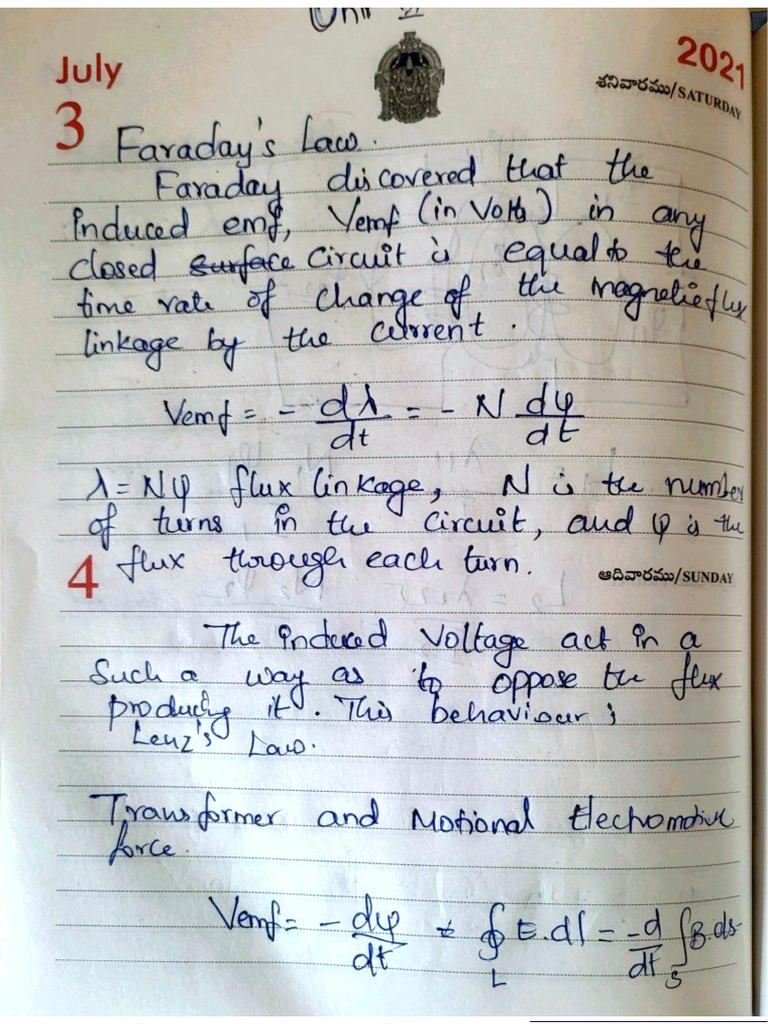 Unit VI
July
2021
శనివారము/SATURDAY
3
Faraday's Law.
Faraday discovered that the
induced emf, Vemf (in Volts) in any
closed surface circuit is equal to the
time rate of change of the magnetic flux
linkage by the current.
Vemf = - dλ/dt = - N dφ/dt
λ = Nφ flux linkage, N is the number
of turns in the circuit, and φ is the
4
flux through each turn.
ఆదివారము/SUNDAY
The induced voltage act in a
Such a way as to oppose the flux
producing it. This behaviour is
Lenz's Law.
Transformer and Motional Electromotive
force.
Vemf = - dφ/dt = ∮L E.dl = -d/dt ∫S B.ds